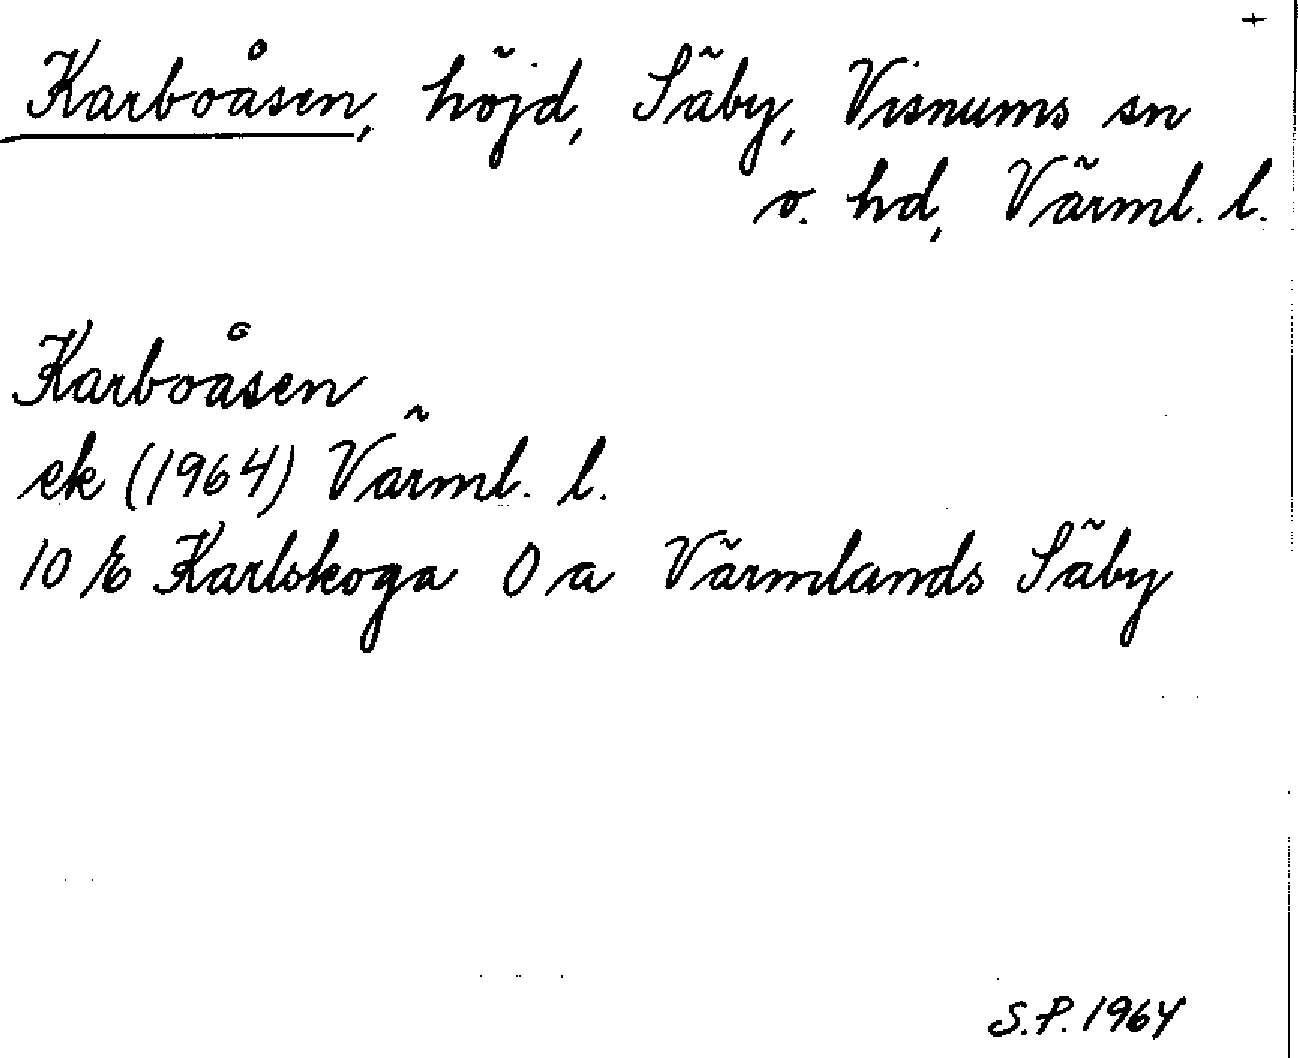 +
Karboåsen, höjd, Säby, Visnums sn
o. hd, Värml. l.
Karboåsen
ek (1964) Värml. l.
10 E Karlskoga 0 a Värmlands Säby
S.P. 1964